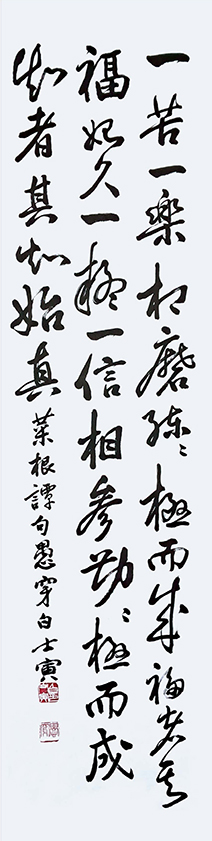 一苦一樂相磨練〻極而成福者其
福始久一疑一信相參勘〻極而成
知者其知始真
菜根譚句愚穿白壬寅